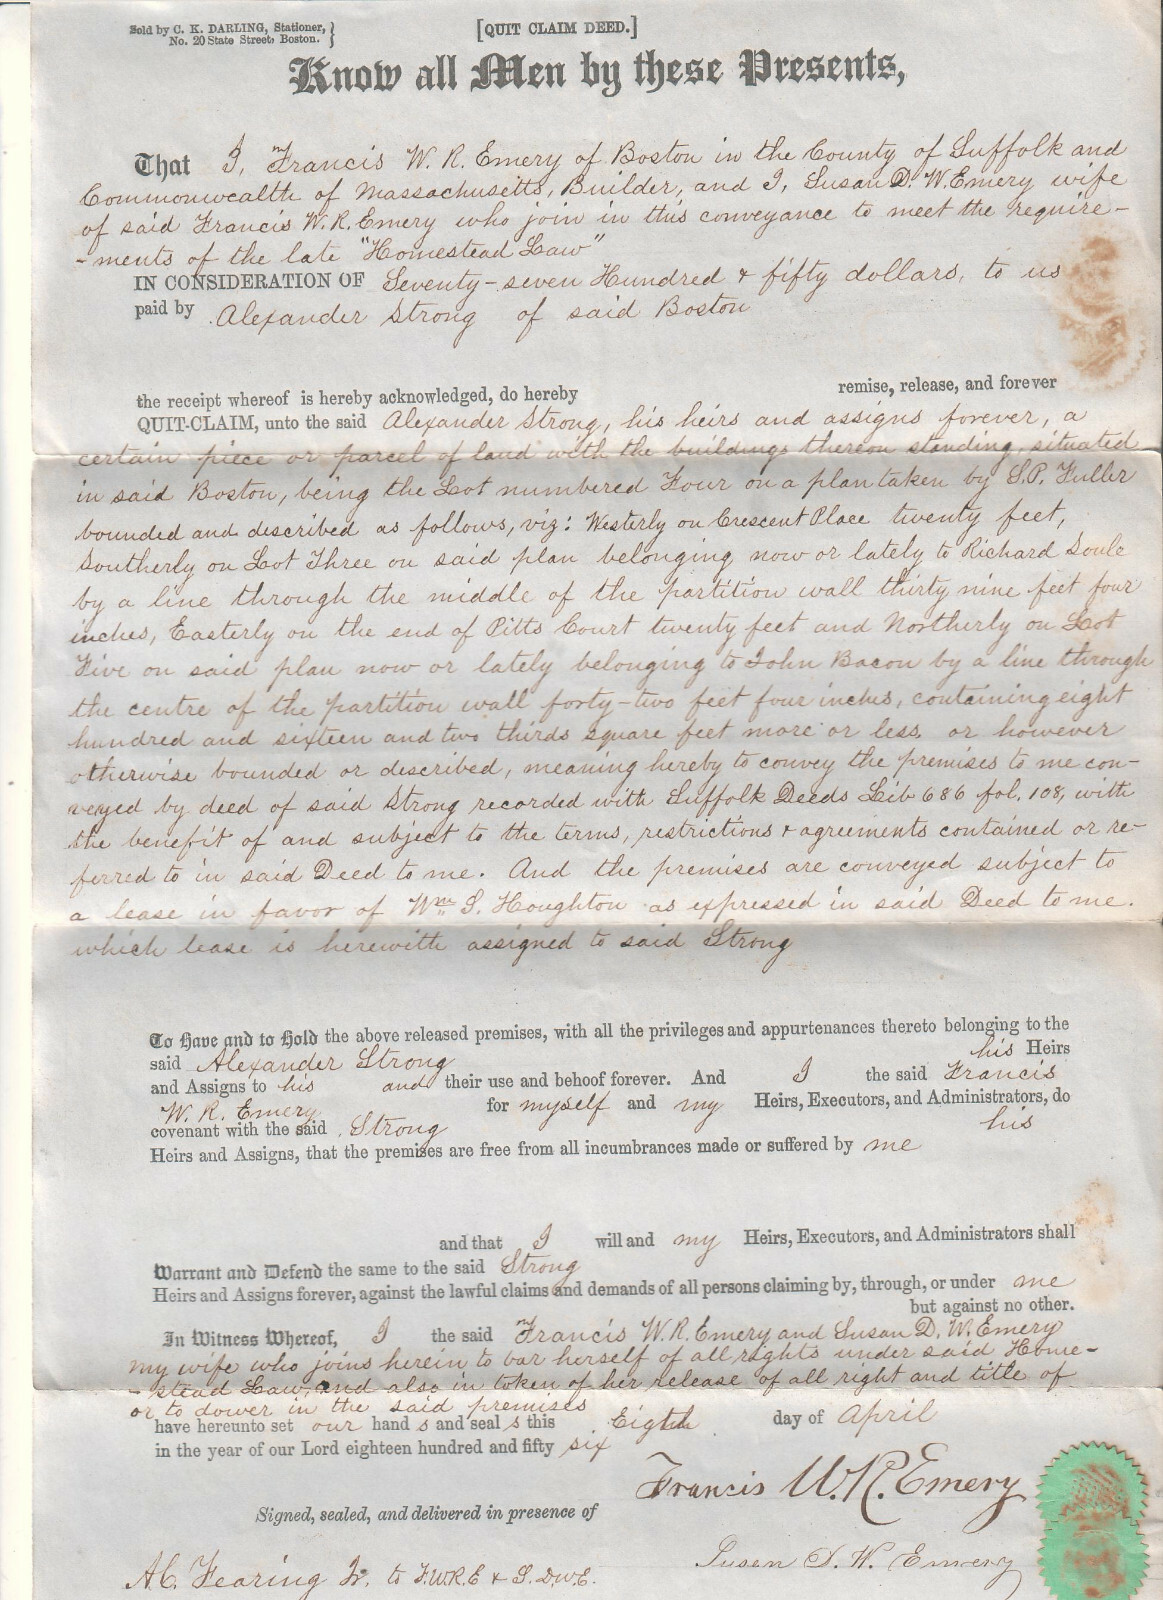 Sold by C. K. DARLING, Stationer,
No. 20 State Street, Boston.
[QUIT CLAIM DEED.]
Know all Men by these Presents,
That I, Francis W. R. Emery of Boston in the County of Suffolk and
Commonwealth of Massachusetts, Builder, and I, Susan D. W. Emery wife
of said Francis W. R. Emery who join in this conveyance to meet the require-
-ments of the late "Homestead Law"
IN CONSIDERATION OF Seventy-seven Hundred & fifty dollars, to us
paid by Alexander Strong of said Boston
the receipt whereof is hereby acknowledged, do hereby remise, release, and forever
QUIT-CLAIM, unto the said Alexander Strong, his heirs and assigns forever, a
certain piece or parcel of land with the buildings thereon standing, situated
in said Boston, being the Lot numbered Four on a plan taken by S. P. Fuller
bounded and described as follows, viz: Westerly on Crescent Place twenty feet,
Southerly on Lot Three on said plan belonging now or lately to Richard Soule
by a line through the middle of the partition wall thirty nine feet four
inches, Easterly on the end of Pitts Court twenty feet and Northerly on Lot
Five on said plan now or lately belonging to John Bacon by a line through
the centre of the partition wall forty-two feet four inches, containing eight
hundred and sixteen and two thirds square feet more or less, or however
otherwise bounded or described, meaning hereby to convey the premises to me con-
veyed by deed of said Strong recorded with Suffolk Deeds Lib 686 fol. 108, with
the benefit of and subject to the terms, restrictions & agreements contained or re-
ferred to in said Deed to me. And the premises are conveyed subject to
a lease in favor of Wm S. Houghton as expressed in said Deed to me.
which lease is herewith assigned to said Strong
To Have and to Hold the above released premises, with all the privileges and appurtenances thereto belonging to the
said Alexander Strong his Heirs
and Assigns to his and their use and behoof forever. And I the said Francis
W. R. Emery for myself and my Heirs, Executors, and Administrators, do
covenant with the said Strong his
Heirs and Assigns, that the premises are free from all incumbrances made or suffered by me
and that I will and my Heirs, Executors, and Administrators shall
Warrant and Defend the same to the said Strong
Heirs and Assigns forever, against the lawful claims and demands of all persons claiming by, through, or under me
but against no other.
In Witness Whereof, I the said Francis W. R. Emery and Susan D. W. Emery
my wife who joins herein to bar herself of all rights under said Home-
-stead Law, and also in token of her release of all right and title of
or to dower in the said premises
have hereunto set our hands and seals this Eighth day of April
in the year of our Lord eighteen hundred and fifty six
Francis W. R. Emery
Signed, sealed, and delivered in presence of
Susan D. W. Emery
A. C. Fearing Jr. to F.W.R.E & S.D.W.E.